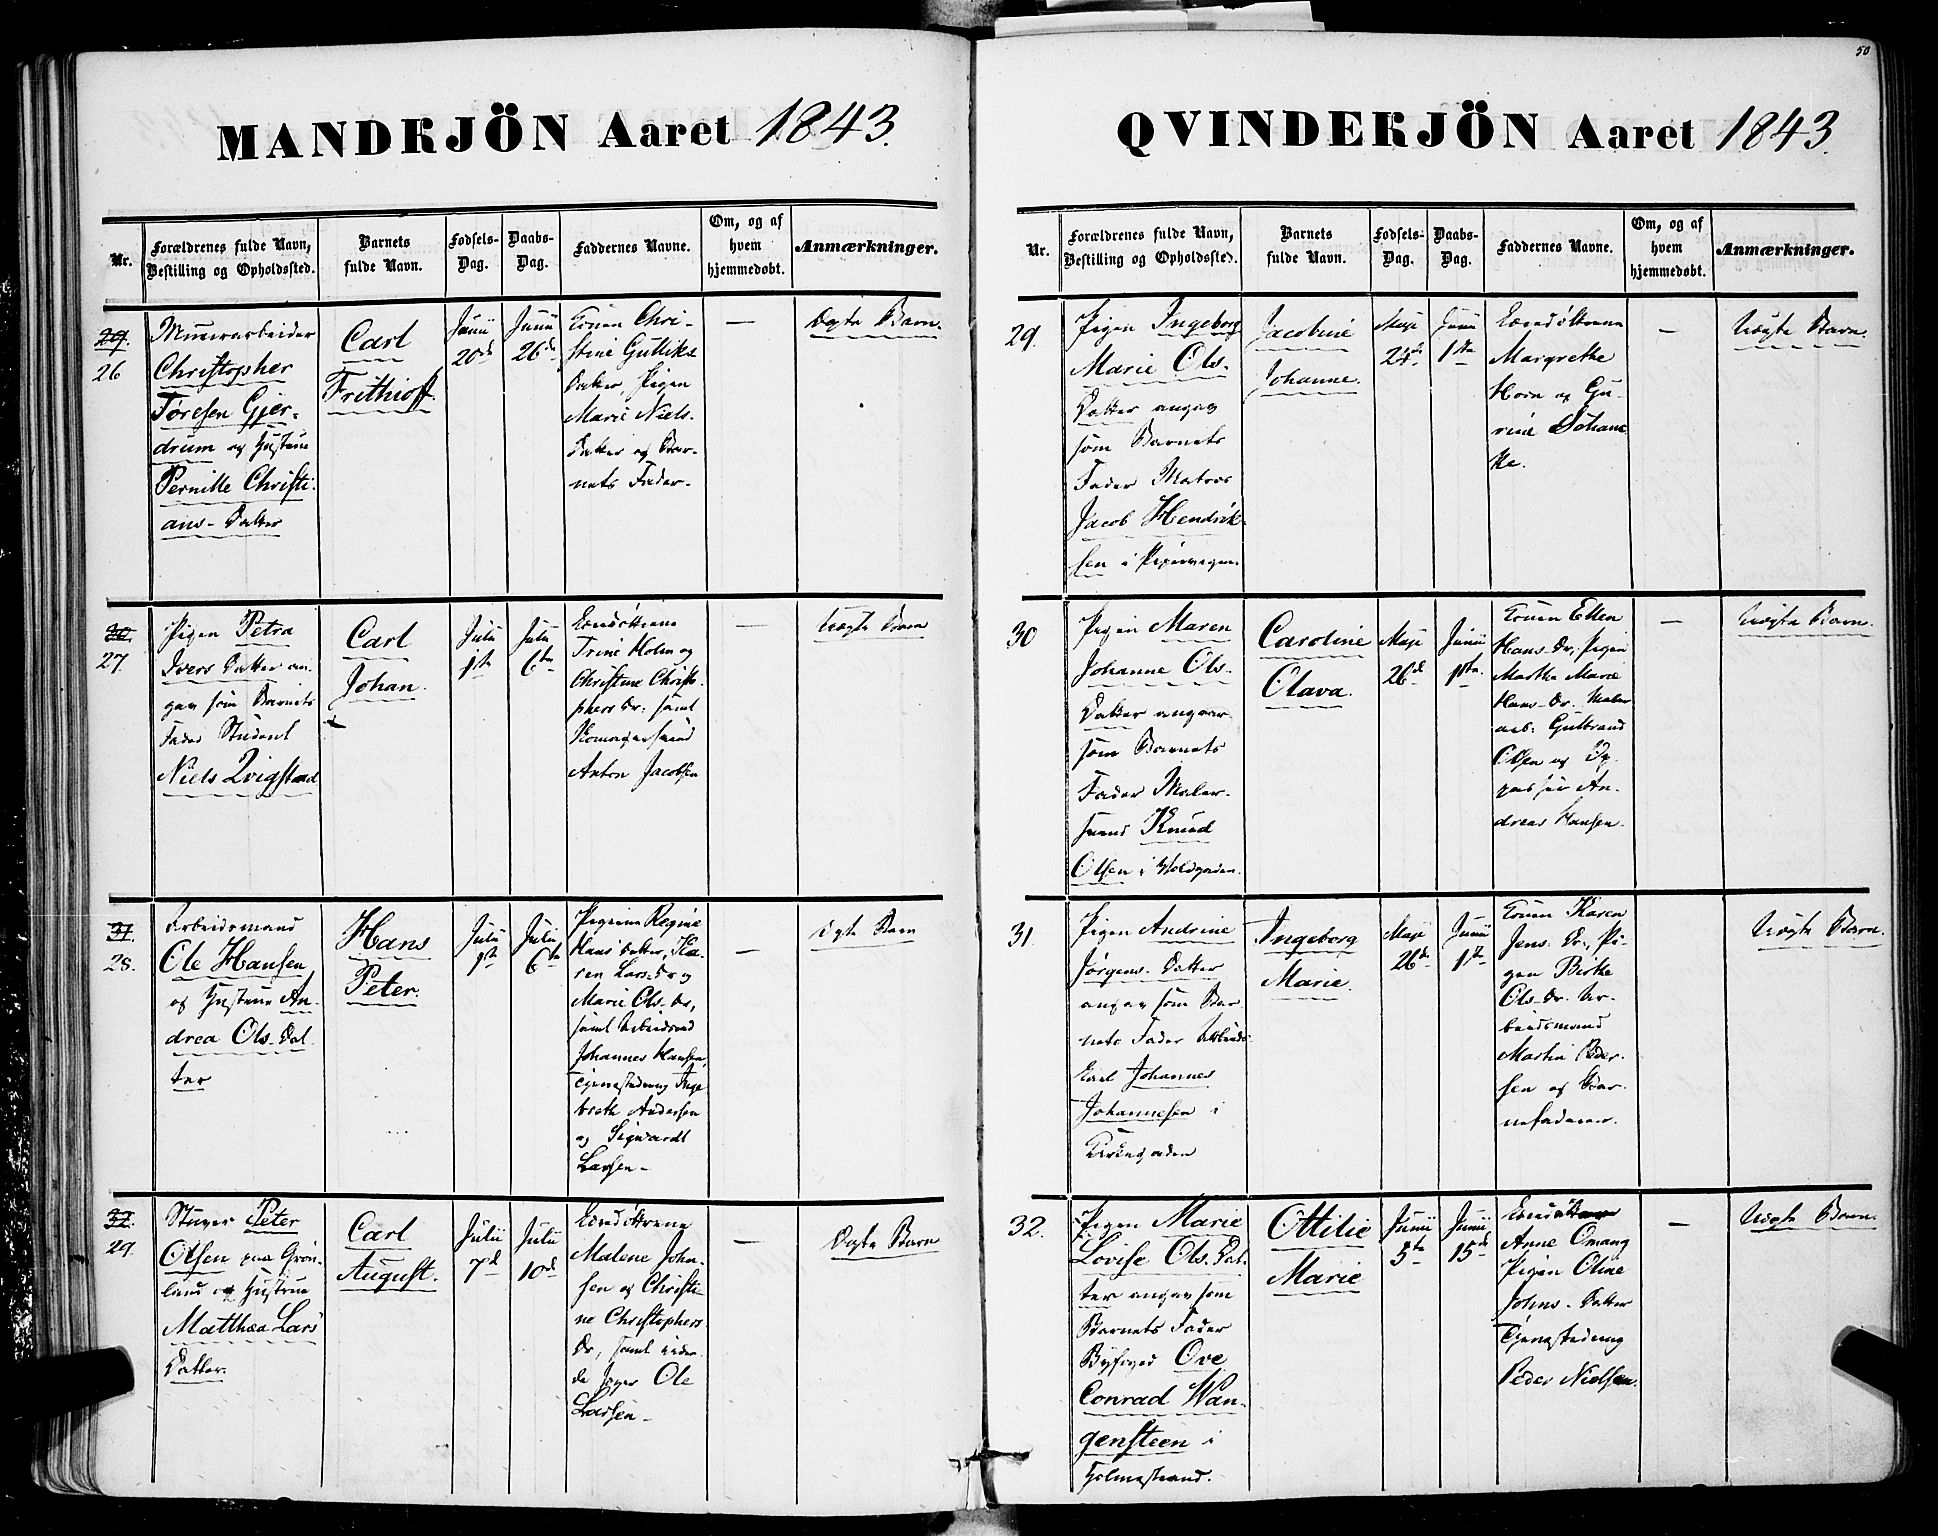 50
MANDKJÖN Aaret 1843.
Nr.
Forældrenes fulde Navn,
Bestilling og Opholdssted.
Barnets
fulde Navn.
Fodsels-
Dag.
Daabs-
Dag.
Faddernes Navne.
Om, og af
hvem
hjemmedøbt.
Anmærkninger.
29.
26
Murerarbeider
Christopher
Töresen Gjer-
drum og Hustrue
Pernille Christi-
ans-Datter
Carl
Frithioff.
Junii
20de
Junii
26de
Konen Chri-
stine Gulliks
Datter, Pigen
Marie Niels-
Datter og Bar-
nets Fader-
—
Ægte Barn.
30.
27.
Pigen Petra
Ivers Datter an-
gav som Barnets
Fader Student
Niels Qvigstad
Carl
Johan.
Julii
1ste
Julii
6te
Trine Holm og
Christine Christo-
phers Dr. samt
Anton Jacobsen
—
Uægte Barn
31.
28.
Arbeidsmand
Ole Hansen
og Hustrue An-
drea Ols-Dat-
ter
Hans
Peter.
Julii
1ste
Julii
6te
Pigerne Regine
Hans Datter, Ka-
ren Lars-Dr og
Marie Ols-Dr,
samt Arbeidsmd
Johannes Hansen,
Tjenestedreng Inge
breth Andersen
og Sigvardt
Larsen-
—
Ægte Barn
32.
29.
Stuver Peter
Olsen paa Grön-
land og Hustrue
Matthea Lars
Datter.
Carl
August.
Julii
7de
Julii
10de
Malene John-
sen og Christi-
ne Christophers
Dr, samt
Ole
Larsen-
—
Ægte Barn
QVINDEKJÖN Aaret 1843.
Nr.
Forældrenes fulde Navn,
Bestilling og Opholdssted.
Barnets
fulde Navn.
Fodsels-
Dag.
Daabs-
Dag.
Faddernes Navne.
Om, og af
hvem
hjemmedøbt.
Anmærkninger.
29.
Pigen Ingeborg
Marie Ols-
Datter angav
som Barnets
Fader Matros
Jacob Hendrik-
sen i Pipervigen.
Jacobine
Johanne.
Maji
24de
Junii
1ste
Margrethe
Horn og Gu-
rine
—
Uægte Barn.
30
Pigen Maren
Johanne Ols-
Datter angav
som Barnets
Fader Maler-
svend Knud
Olsen i Voldgaden.
Caroline
Olava.
Maji
26de
Junii
1ste
Konen Ellen
Hans-Dr, Pigen
Martha Marie
Hans-Dr. Maler
arb: Gulbrand
Olsen og Op-
passer An-
dreas Hansen.
—
Uægte Barn.
31.
Pigen Andrine
Jörgens-Datter
angav som Bar
nets Fader
Johannes
Johannesen i
Ingeborg
Marie.
Maji
26de
Junii
1ste
Konen Karen
Jens-Dr, Pi-
gen Birthe
Ols-Dr. Ar-
beidsmand
Martin Peder-
sen og Bar-
nefaderen.
Uægte Barn.
32.
Pigen Marie
Lovise Ols-Dat-
ter angav som
Barnets Fader
Byfoged Ove
Conrad Wan-
gensteen i
Holmestrand.
Ottilie
Marie
Junii
5te
Junii
15de
Anne Omang
Pigen Oline
Johns-Datter
Tjenestedreng
Peder Nielsen.
—
Uægte Barn.